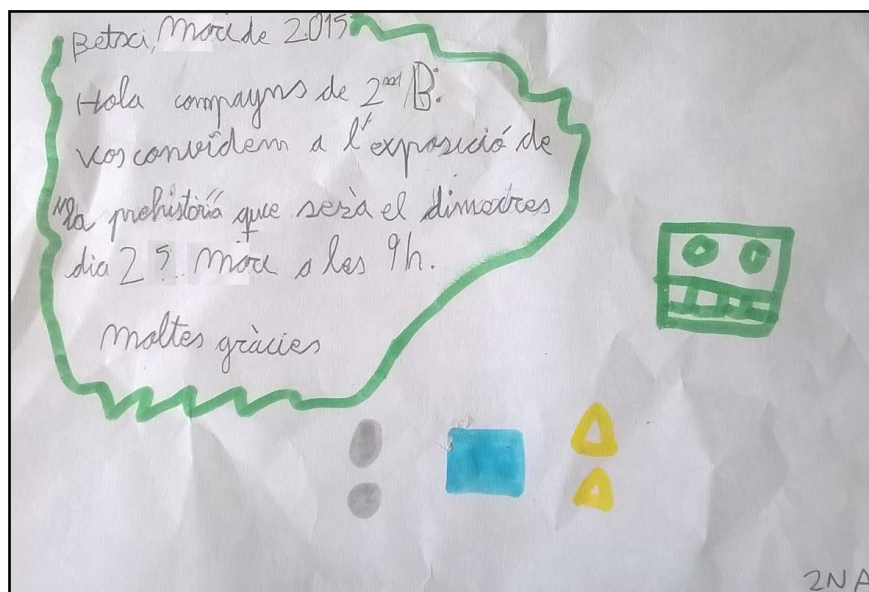 Betxi, Març de 2.015
Hola companyns de 2ⁿᵈ/B:
vos convidem a l'exposició de
la prehistòria que serà el dimectres
dia 25 març a les 9h.
moltes gràcies
2N A